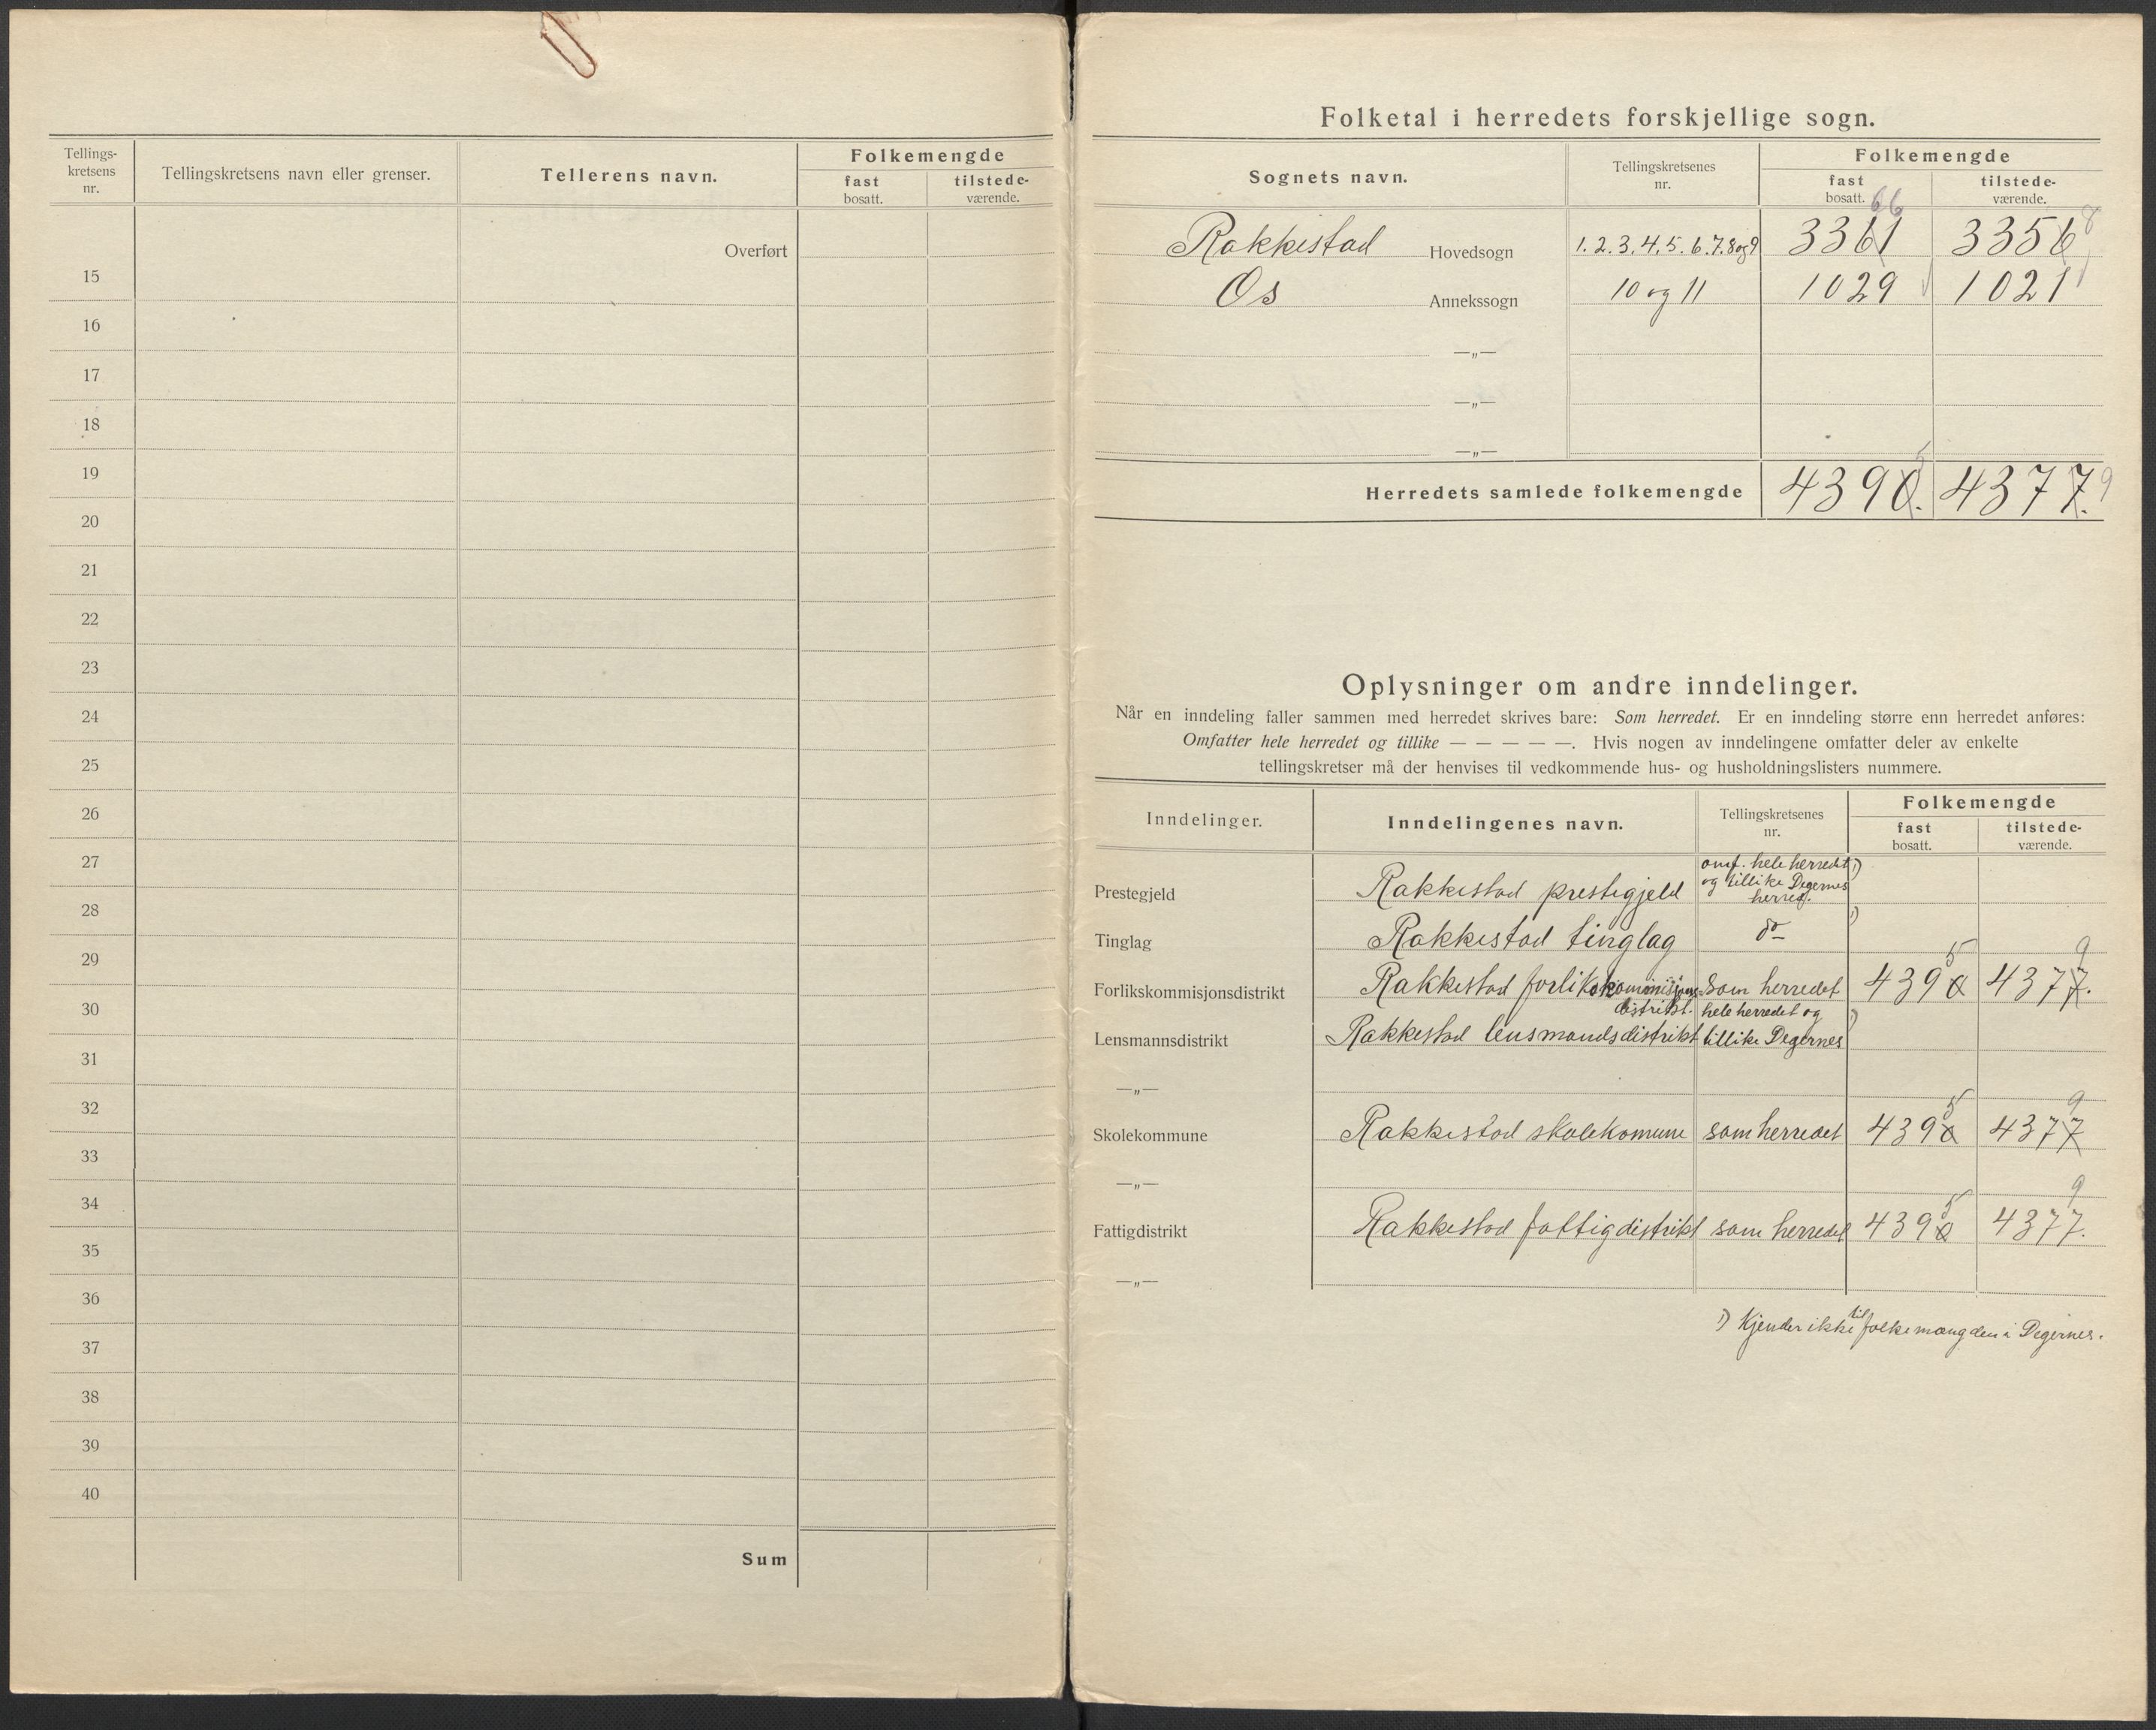 Tellings-
kretsens
nr.
Tellingskretsens navn eller grenser.
Tellerens navn.
Folkemengde
fast
bosatt.
tilstede-
værende.
Overført
15
16
17
18
19
20
21
22
23
24
25
26
27
28
29
30
31
32
33
34
35
36
37
38
39
40
Sum
Folketal i herredets forskjellige sogn.
Sognets navn.
Tellingskretsenes
nr.
Folkemengde
fast
bosatt.
tilstede-
værende.
66
8
Rakkestad Hovedsogn 1. 2. 3. 4. 5. 6. 7. 8 og 9 3361 3356
Os Annekssogn 10 og 11 1029 1021
—„—
—„—
—„—
5
Herredets samlede folkemengde 4390. 4377. 9
Oplysninger om andre inndelinger.
Når en inndeling faller sammen med herredet skrives bare: Som herredet. Er en inndeling større enn herredet anføres:
Omfatter hele herredet og tillike — — — — —. Hvis nogen av inndelingene omfatter deler av enkelte
tellingskretser må der henvises til vedkommende hus- og husholdningslisters nummere.
Inndelinger.
Inndelingenes navn.
Tellingskretsenes
nr.
Folkemengde
fast
bosatt.
tilstede-
værende.
Prestegjeld Rakkestad prestegjeld omf. hele herredet 1)
og tillike Degernes
herred.
Tinglag Rakkestad tinglag do 1)
5 9
Forlikskommisjonsdistrikt Rakkestad forlikskommisjons- som herredet 4390 4377.
distrikt. hele herredet og 1)
Lensmannsdistrikt Rakkestad lensmandsdistrikt tillike Degernes
—„—
5 9
Skolekommune Rakkestad skolekomune som herredet 4390 4377
—„—
5 9
Fattigdistrikt Rakkestad fattigdistrikt som herredet 4390 4377.
—„—
1) Kjender ikke til folkemængden i Degernes.